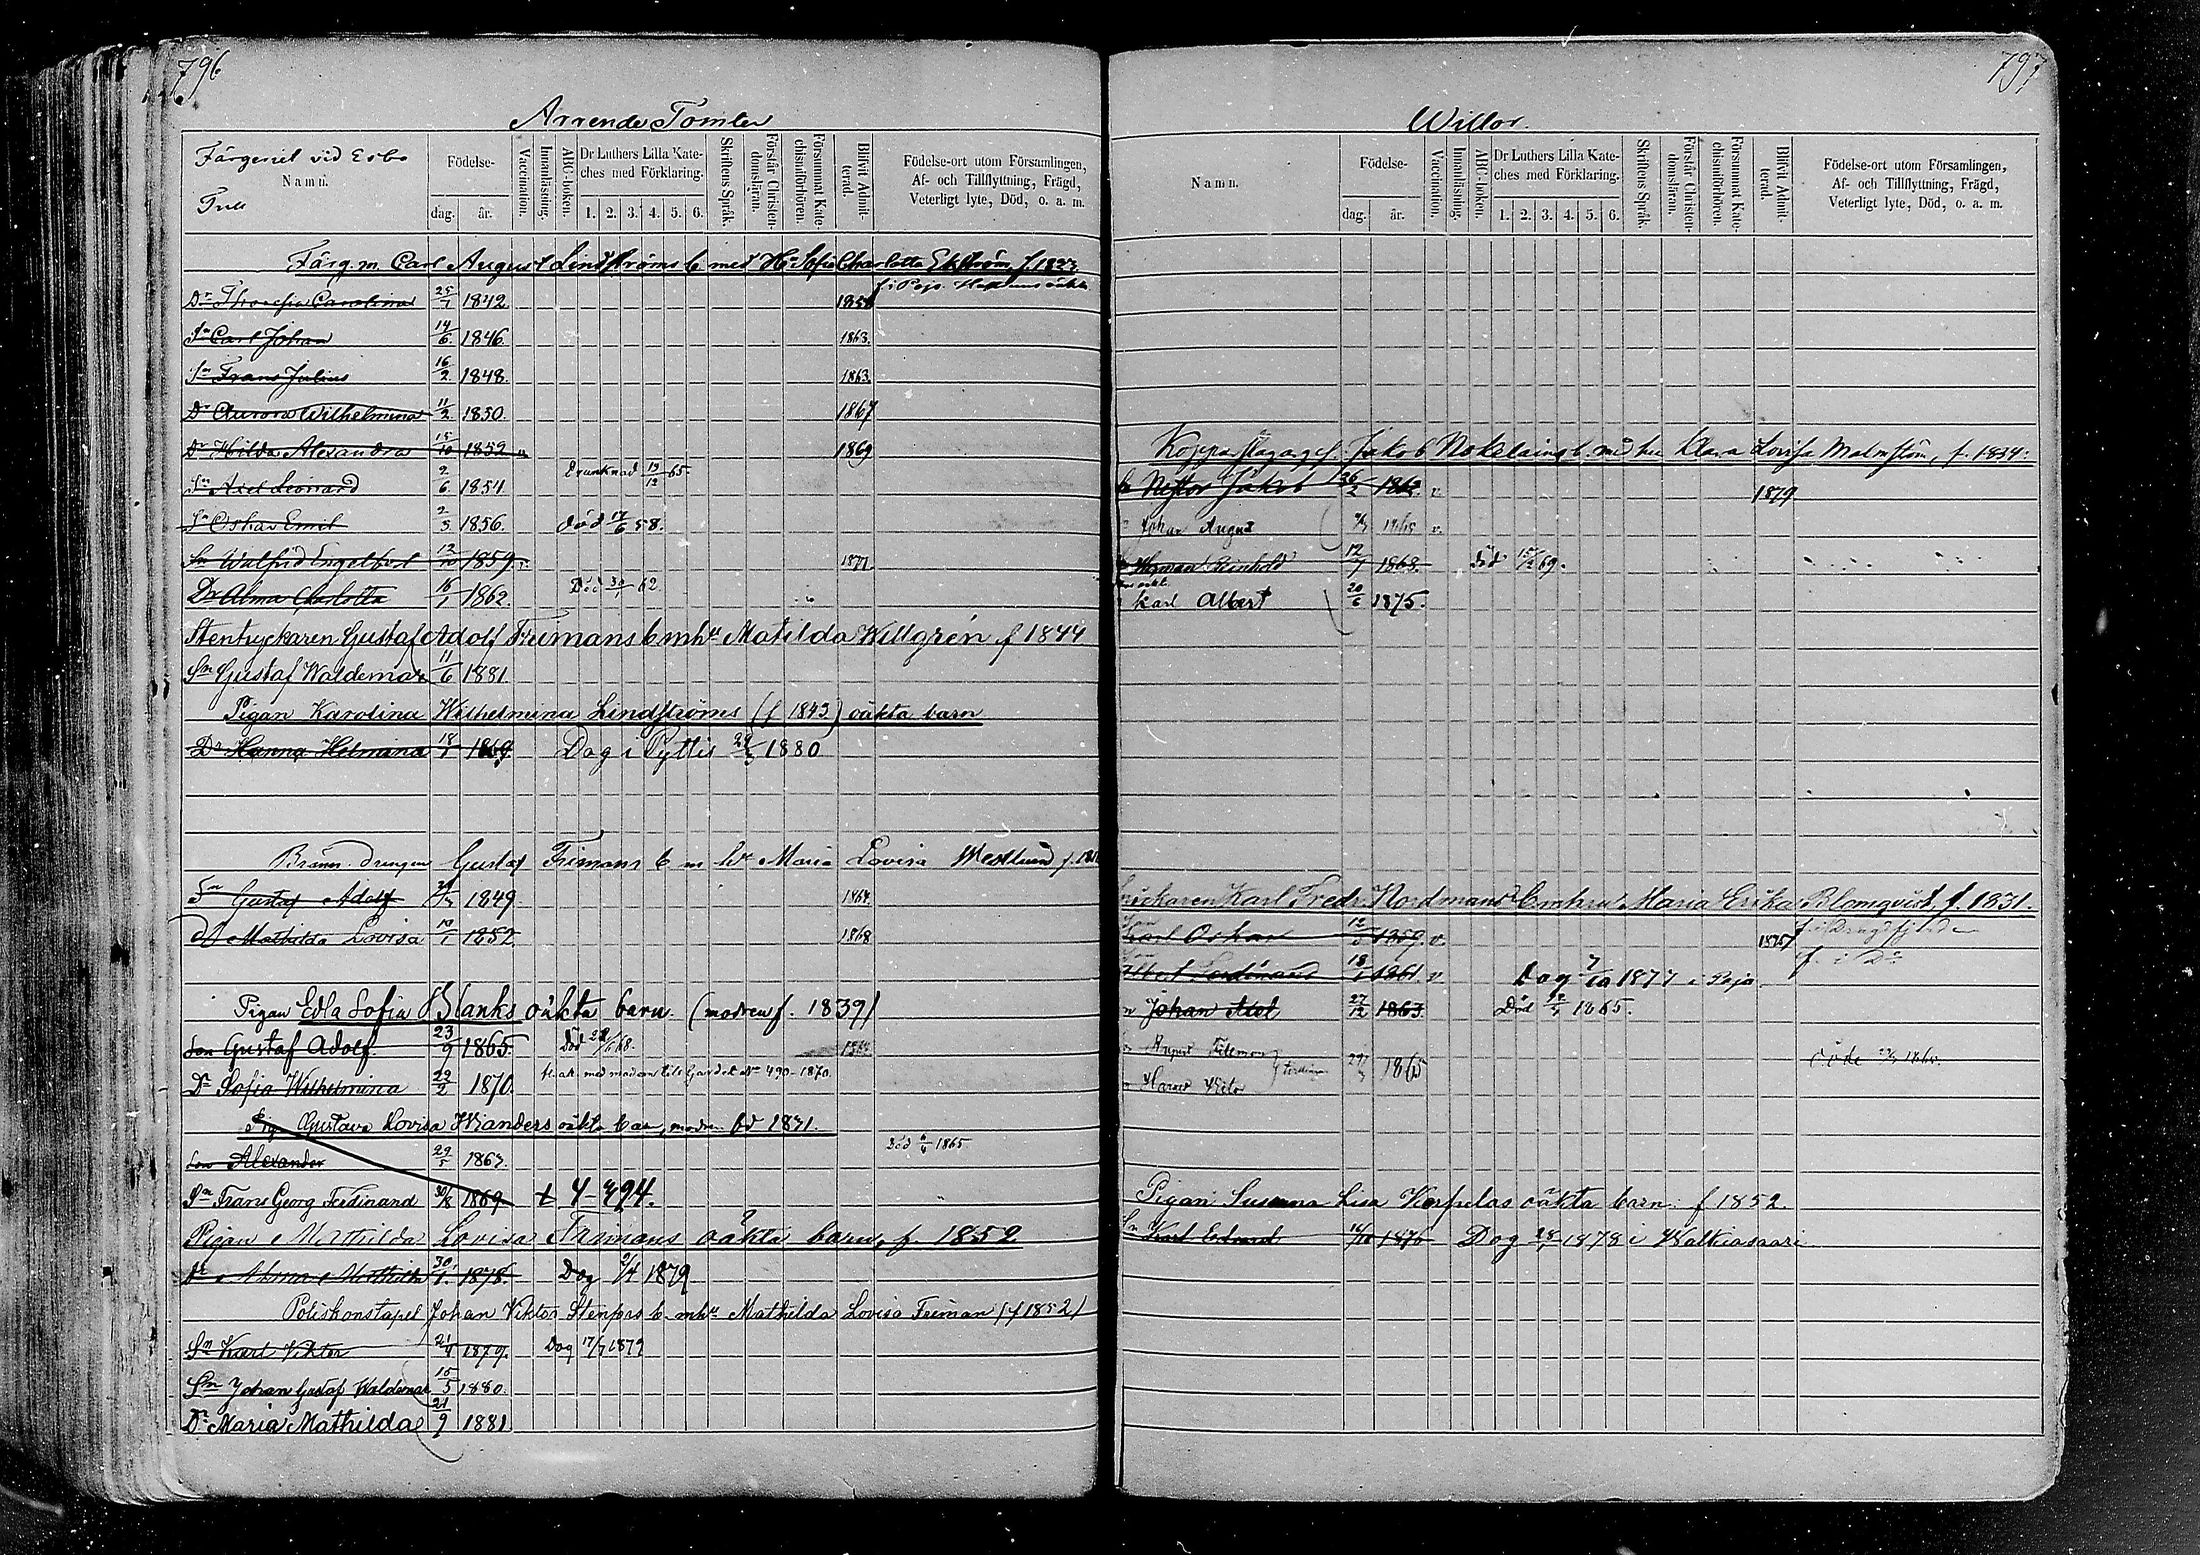 796
Arrende Tomter
Färgeriet vid Esbo
Tull
Namn.
Födelse-
dag. år.
Vaccination.
Innanläsning.
ABC-boken.
Dr Luthers Lilla Kate-
ches med Förklaring.
1. 2. 3. 4. 5. 6.
Skriftens Språk.
Förstår Christen-
domsläran.
Försummat Kate-
chismiförhören.
Blifvit Admit-
terad.
Födelse-ort utom Församlingen,
Af- och Tillflyttning, Frägd,
Veterligt lyte, Död, o. a. m.
Färg m. Carl August Lindströms b med Hu Sofia Charlotta Ekström f. 1823
Dr Theresia Carolina 25/1 1842. 1858
Sn Carl Johan 14/6 1846. 1863.
Sn Frans Julius 16/2 1848. 1863.
Dr Aurora Wilhelmina 11/2 1850. 1867
Dr Hilda Alexandra 15/10 1852 v 1869
Sn Axel Leonard 2/6 1854 Drunknad 13/12 65.
Sn Oskar Emil 2/3 1856. död 17/6 58.
Sn Walfrid Engelbert 12/10 1859. v. 1877.
Dr Alma Charlotta 16/1 1862. Död 30/1 62.
Stentryckaren Gustaf Adolf Frimans b mhu Matilda Willgrén f 1844
Sn Gustaf Waldemar 11/6 1881
Pigan Karolina Wilhelmina Lindströms (f 1843) oäkta barn
Dr Hanna Helmina 18/1 1869 Dog i Pyttis 1880
Bränn. drengen Gustaf Frimans b m hu Maria Lovisa Westlund
Sn Gustaf Adolf 1849. 1864.
Dr Mathilda Lovisa 10/1 1852 1868
Pigan Edla Sofia Blanks oäkta barn. (modren f. 1839)
Son Gustaf Adolf. 23/9 1865. Död 68.
Dr Sofia Wilhelmina 22/2 1870. med modren till No 490-1870.
Pig. Gustava Lovisa Wianders oäkta bar, modren föd 1831.
Son Alexander 29/5 1863. Död 1865
Sn Frans Georg Ferdinand 30/8 1869 t 4-494.
Pigan Mathilda Lovisa Frimans oäkta barn, f. 1852
Dr Alma Mathilda 30/1 1878. Dog 2/4 1879
Poliskonstapel Johan Viktor Stenfors b. mhu Mathilda Lovisa Friman (f 1852)
Sn Karl Viktor 21/4 1879. Dog 17/7 1879
Sn Johan Gustaf Waldemar 10/5 1880.
Dr Maria Mathilda 21/9 1881
797
Willor.
Namn.
Födelse-
dag. år.
Vaccination.
Innanläsning.
ABC-boken.
Dr Luthers Lilla Kate-
ches med Förklaring.
1. 2. 3. 4. 5. 6.
Skriftens Språk.
Förstår Christen-
domsläran.
Försummat Kate-
chismiförhören.
Blifvit Admit-
terad.
Födelse-ort utom Församlingen,
Af- och Tillflyttning, Frägd,
Veterligt lyte, Död, o. a. m.
Jakob Nokelains b. med hu Klara Lovisa Malmström, f. 1834.
Nestor Jakob 26/2 1862. v. 1879
Johan August 1865 v.
Herman Reinhold 12/7 1868. död 15/2 69.
Karl Albert 20/6 1875.
Karl Fredr. Nordmans b m hru Maria Erika Blomqvist f. 1831.
Karl Oskar 12/5 1859. v. 1875
Albert Ferdinand 18/1 1861. v Dog 7/10 1877 i Pojo
Johan Axel 27/12 1863 Död 1865.
August Filemon
1865 döde 1865.
Pigan Susanna Lisa Korpelas oäkta barn. f 1852.
Sn Karl Edvard 1876 Dog 1878 i Walkiasaari